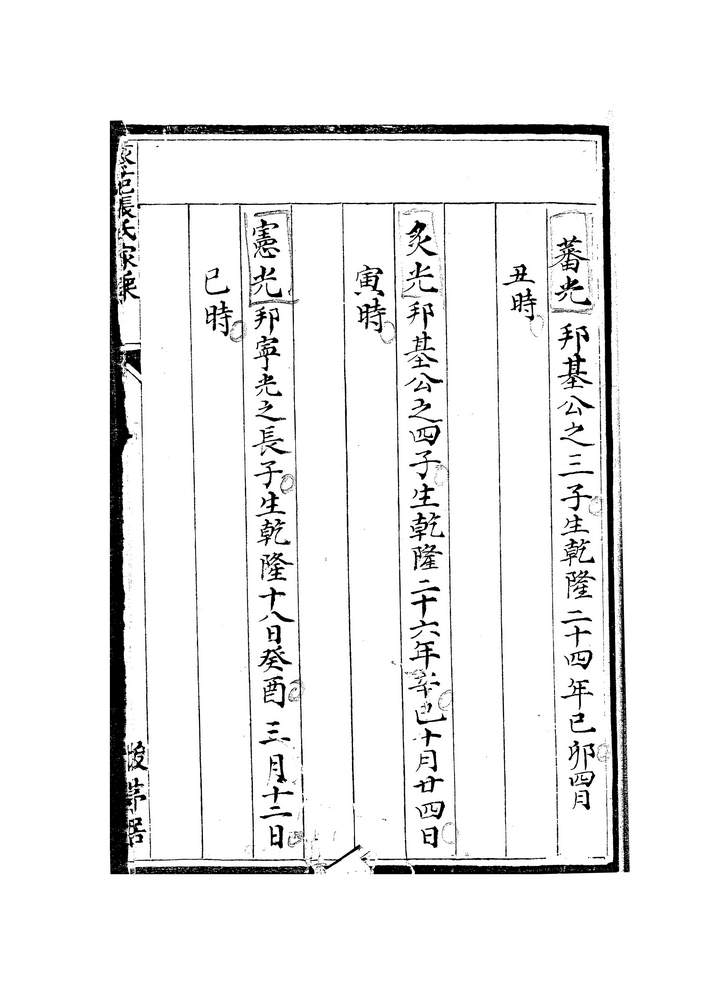 蕃光 邦基公之三子生乾隆二十四年己卯四月
丑時
炙光 邦基公之四子生乾隆二十六年辛巳十月廿四日
寅時
憲光 邦寧光之長子生乾隆十八日癸酉三月十二日
巳時
張氏家乘